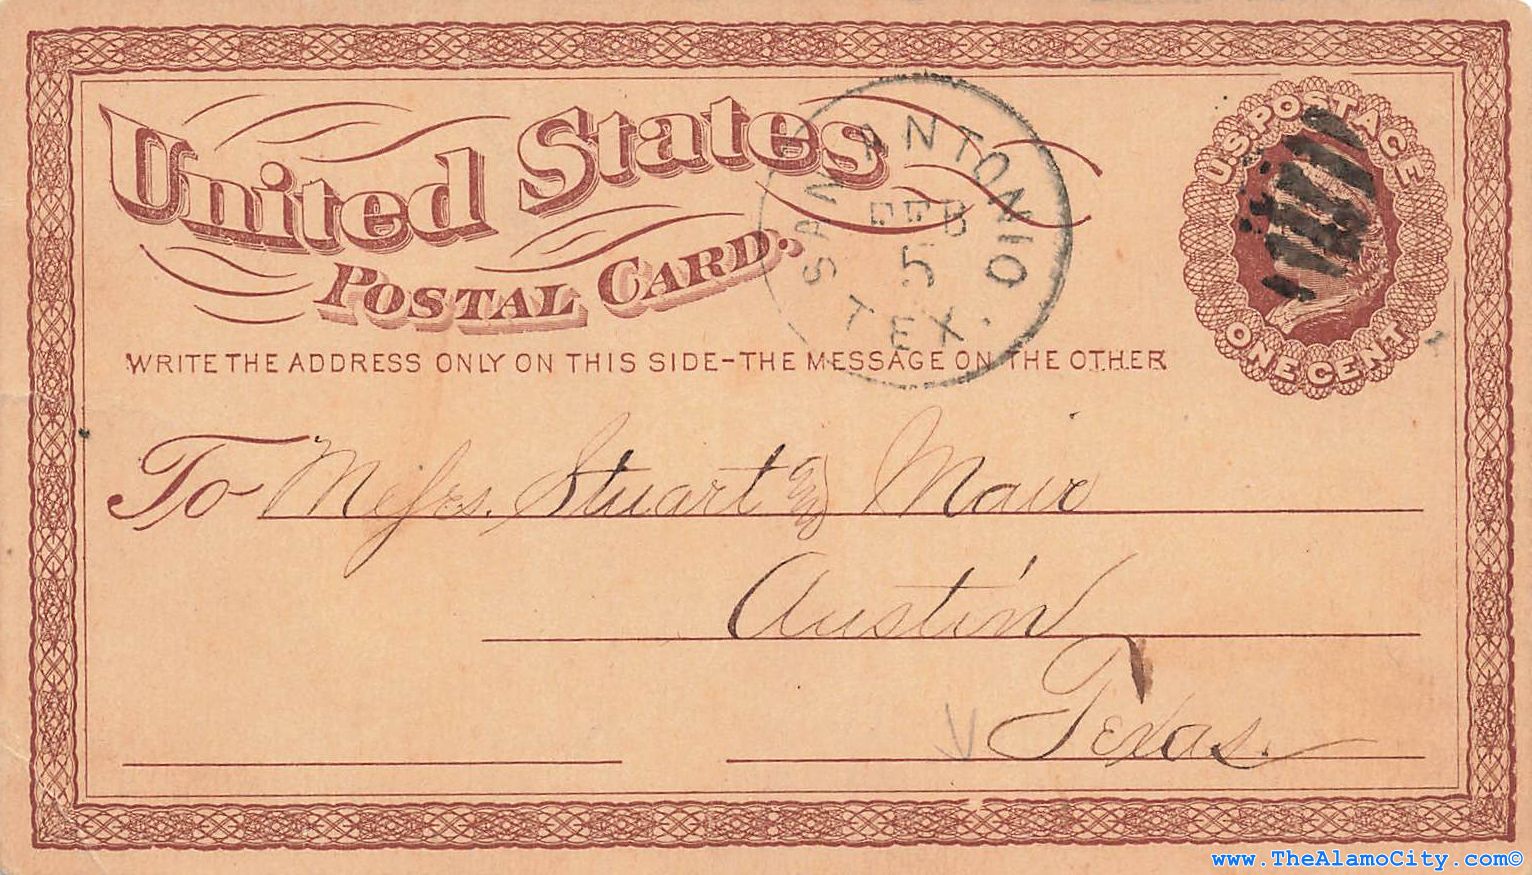 United States
POSTAL CARD.
U.S. POSTAGE
ONE CENT
SAN ANTONIO
FEB
5
TEX.
WRITE THE ADDRESS ONLY ON THIS SIDE-THE MESSAGE ON THE OTHER
To Messrs. Stuart & Mair
Austin
Texas.
www.TheAlamoCity.com©